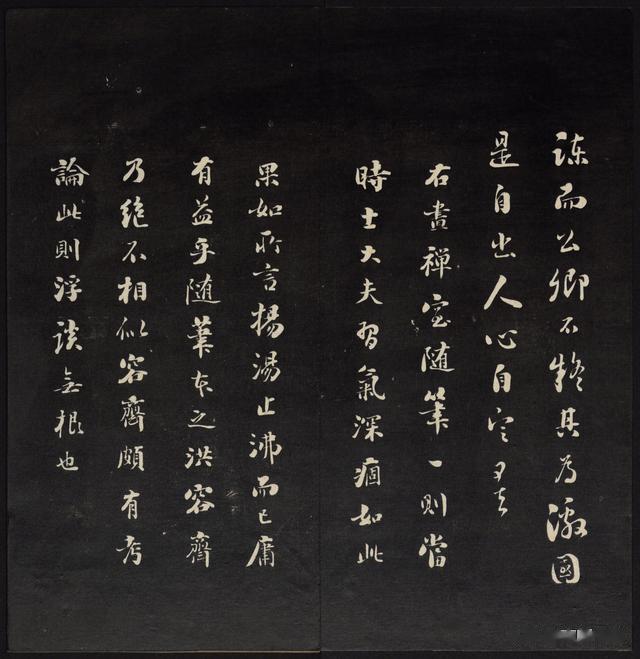 諫而公卿不疑其為激國
是自出人心自定
右畫禪室隨筆一則當
時士大夫習氣深痼如此
果如所言揚湯止沸而已庸
有益乎隨筆本之洪容齋
乃絕不相似容齋頗有考
論此則浮談無根也